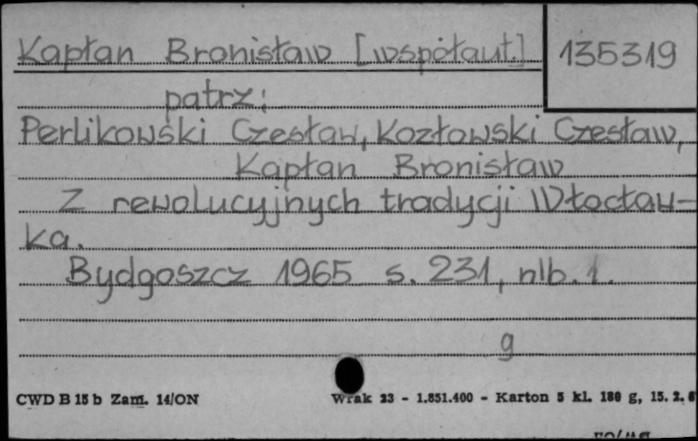 Kapłan Bronisław [współaut.] 135319
patrz:
Perlikowski Czesław, Kozłowski Czesław,
Kapłan Bronisław
Z rewolucyjnych tradycji Włocław-
ka.
Bydgoszcz 1965 s. 231, nlb. 1.
g
CWD B 15 b Zam. 14/ON Wrak 23 - 1.851.400 - Karton 5 kl. 180 g, 15. 2. 6